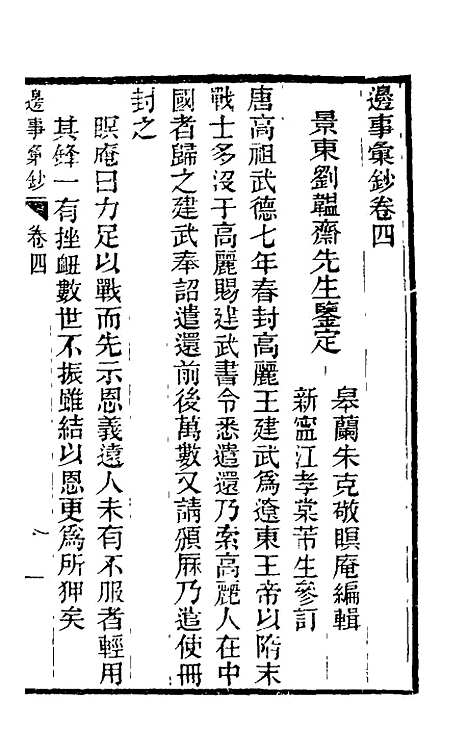 邊事彙鈔卷四
景東劉韞齋先生鑒定
皋蘭朱克敬瞑庵編輯
新寧江孝棠芾生參訂
唐高祖武德七年春封高麗王建武為遼東王帝以隋末
戰士多沒于高麗賜建武書令悉遣還乃索高麗人在中
國者歸之建武奉詔遣還前後萬數又請頒厤乃遣使冊
封之
瞑庵曰力足以戰而先示恩義遠人未有不服者輕用
其鋒一有挫衄數世不振雖結以恩更為所狎矣
邊事彙鈔 卷四 一